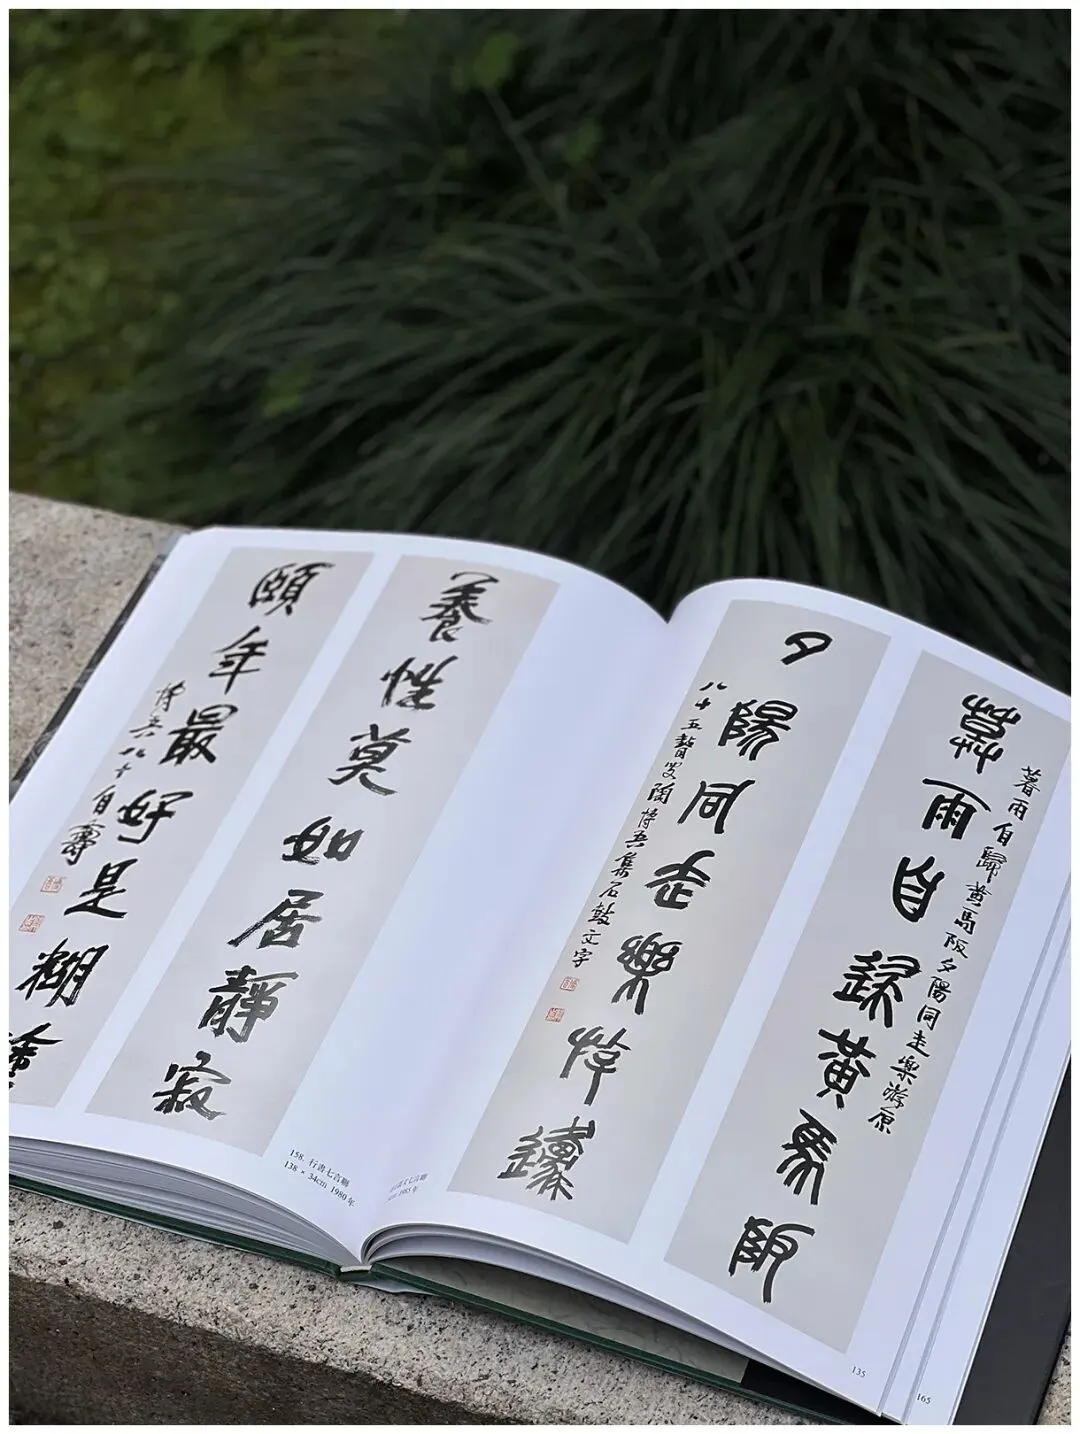 養性莫如居靜寂
頤年最好是糊塗
博吾八十自壽
158. 行書七言聯
138 × 34cm 1980年
暮雨自歸黃馬阪
暮雨自歸黃馬阪夕陽同走樂游原
夕陽同走樂游原
八十五瞽叟陶博吾集石鼓文字
1985年
135
165